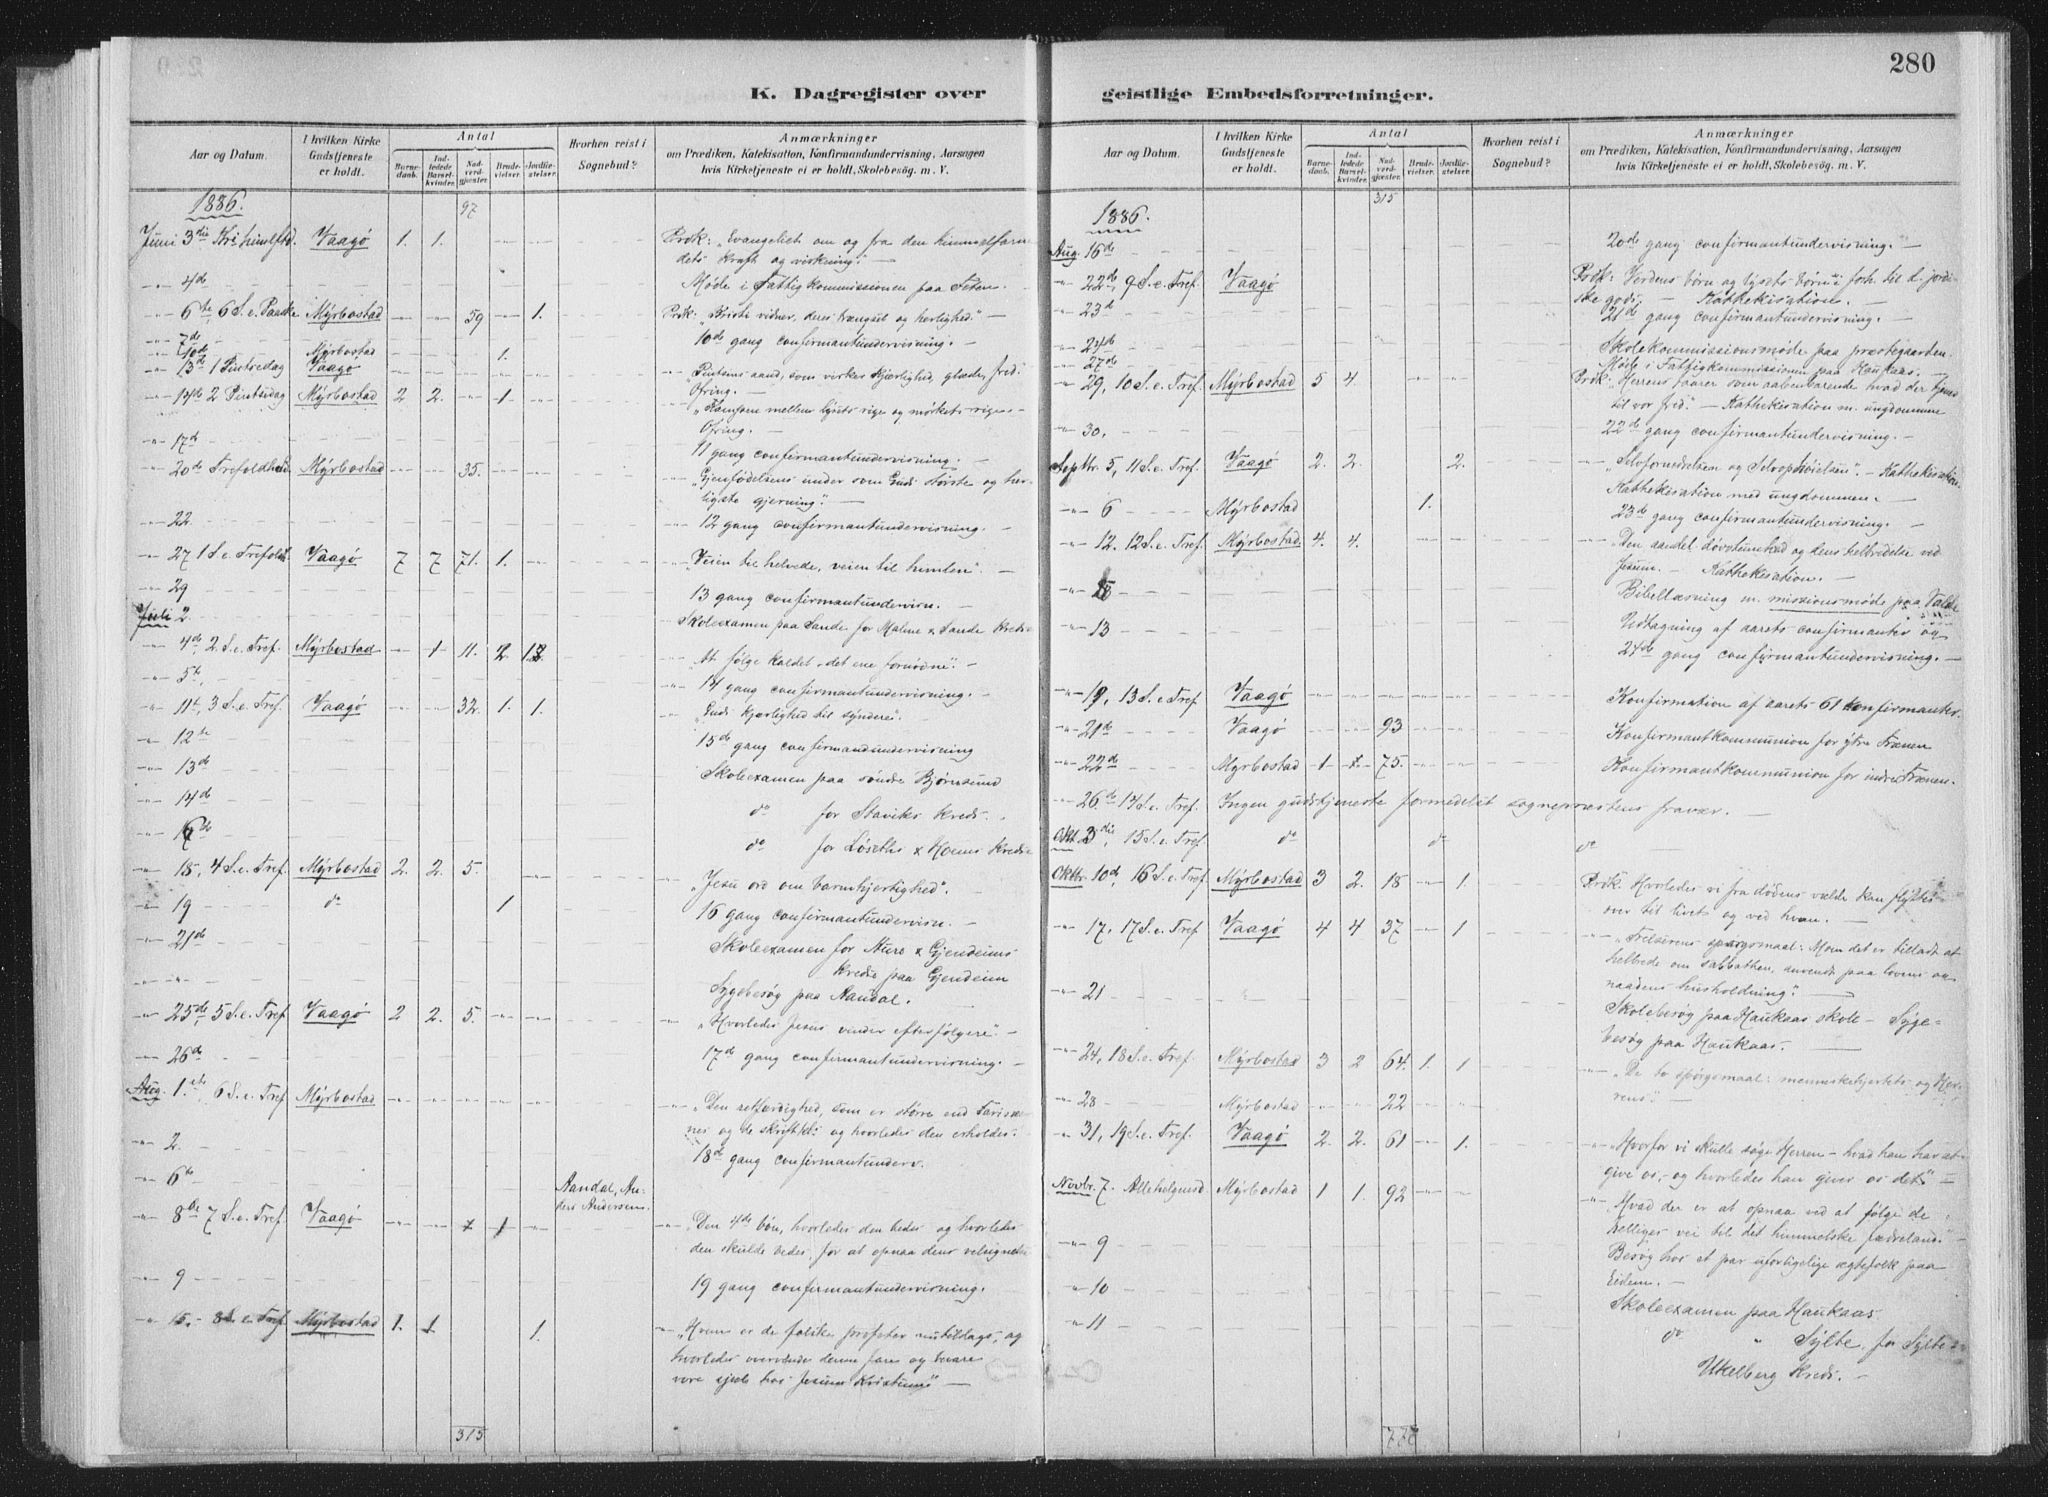 280
K. Dagregister over
Aar og Datum.
I hvilken Kirke Gudstjeneste er holdt.
Antal
Barnedaab.
Indledede Barselkvinder.
Nadverdgjæster.
Brudevielser.
Jordfæstelser.
Hvorhen reist i Sognebud?
Anmærkninger
om Prædiken, Katekisation, Konfirmandundervisning, Aarsagen
hvis Kirketjeneste ei er holdt, Skolebesøg. m. V.
1886. 97
Juni 3die Kr: himlftd. Vaagø 1. 1. Prdk: "Evangeliet om og fra den himmelfarn
dets kraft og virkning." —
4de Møde i Fattigkommissionen paa Teten.
6te, 6 S. e. Paaske Myrbostad 59 1. Prdk: "Kristi vidner, deres trængsel og herlighed." —
7de 10de gang confirmantundervisning. —
10de Myrbostad 1.
13de 1 Pintsedag Vaagø Pintsens aand, som virker kjærlighed, glæde, fred.
Ofring. —
14de 2 Pintsedag Myrbostad 2 2. 1 "Kampen mellem lysets rige og mørkets rige. —
Ofring. —
17de 11 gang confirmantundervisning. —
20de Trefoldhed. Myrbostad 35. "Gjenfødelsens under som Guds største og her
ligste gjerning." —
22. 12 gang confirmantundervisning. —
27 1 S. e. Trefold. Vaagø 7 7 71. 1. "Veien til helvede, veien til himlen". —
29 13 gang confirmantundervisn. —
Juli 2 Skoleexamen paa Sande for Malme & Sande Kredse
4de 2 S. e. Tref. Myrbostad 1 11. "At følge kaldet, det ene fornødne". —
5te 14 gang confirmantundervisning. —
11te, 3 S. e. Tref. Vaagø 32. 1. 1. "Guds kjærlighed til syndere".
12te 15de gang confirmandundervisning
13de Skoleexamen paa søndre Bjørnsund
14de do for Staviks kreds.
16de do for Løseths & Hoems Kredse
18, 4 S. e. Tref. Myrbostad 2. 2. 5. "Jesu ord om barmhjertighed".
19 do 1 16 gang confirmantundervisn. —
21de Skoleexamen for Sture & Gjendeims
kredse paa Gjendeim
Sygebesøg paa Aandal.
25de, 5 S. e. Tref. Vaagø 2 2. 5. "Hvorledes Jesus vinder efterfølgere". —
26de 17de gang confirmantundervisning. —
Aug. 1ste, 6 S. e. Tref. Myrbostad "Den retfærdighed, som er større end Farisæer
nes og de skriftkl: og hvorledes den erholdes.
2. 18de gang confirmantunderv.
6te Aandal, An-
ders Andersen.
8de 7 S. e. Tref. Vaagø 1 "Den 4de bøn, hvorledes den bedes og hvorledes
den skulde bedes, for at opnaa dens velsignelse
9 19 gang confirmantundervisning.
15. 8de e. Tref. Myrbostad 1. 1 1. "Hvem er de falske profeter nutildags, og
hvorledes overvinde denne fare og bevare
vore sjele hos Jesum Kristum" —
315
geistlige Embedsforretninger.
Aar og Datum.
I hvilken Kirke Gudstjeneste er holdt.
Antal
Barnedaab.
Indledede Barselkvinder.
Nadverdgjæster.
Brudevielser.
Jordfæstelser.
Hvorhen reist i Sognebud?
Anmærkninger
om Prædiken, Katekisation, Konfirmandundervisning, Aarsagen
hvis Kirketjeneste ei er holdt, Skolebesøg. m. V.
1886. 315
Aug. 16de 20de gang confirmantundervisning. —
22de, 9 S. e. Tref. Vaagø Prdk: Verdens børn og lysets børns forh. til d. jordi-
ske gods. — Kathekisation. —
23de 21de gang confirmantundervisning. —
24de Skolekommissionsmøde paa præstegaarden.
27de Møde i Fattigkommissionen paa Haukaas. —
29, 10 S. e. Tref. Myrbostad 5 4. Prdk: "Herrens taarer som aabenbarende hvad der tjener
til vor fred". — Kathekisation m. ungdommen
30, 22de gang confirmantundervisning. —
Septbr. 5, 11 S. e. Tref. Vaagø 2. 2. 2. "Selvfornedrelsen og Selvophøielsen". — Kathekisation.
6 Myrbostad 1. Kathekisation med ungdommen. —
23de gang confirmantundervisning. —
12. 12 S. e. Tref. Myrbostad. 4. 4. "Den aandel. døvstumhed og dens helbredelse ved
Jesum. — Kathekisation. —
Bibellæsning m. missionsmøde paa
13 Udtagning af aarets confirmanter og
24de gang confirmantundervisning. —
19, 13 S. e. Tref Vaagø Konfirmation af aarets 61 konfirmanter.
21de Vaagø 93 Konfirmantkommunion for ytre Frænen
22de Myrbostad 1 1 75. Konfirmantkommunion for indre Frænen.
26de 14 S. e. Tref. Ingen gudstjeneste formedelst sognepræstens fravær. —
Okt. 3die, 15 S. e. Tref. do do do
Oktbr. 10de, 16 S. e. Tref Myrbostad 3 2. 18 1. Prdk. Hvorledes vi fra dødens vælde kan flyttes
over til livets og ved hvem. —
17, 17 S. e. Tref Vaagø 4 4 37 1 "Frelserens spørgsmaal: Mon det er tilladt at
helbrede om sabbathen, anvendt paa lovens og
naadens husholdning". —
21 Skolebesøg paa Haukaas skole — Syge-
besøg paa Haukaas. —
24, 18 S. e. Tref. Myrbostad 3 2 64. 1. 1 "De to spørgsmaal: menneskehjertets og Her-
rens". —
28 Myrbostad 22
31, 19 S. e. Tref. Vaagø 2. 2. 61 1. "Hvorfor vi skulle søge Herren — hvad han har at
give os, og hvorledes han giver os det" —
Novbr. 7. Allehelgensd Myrbostad 1 1. 92 "Hvad der er at opnaa ved at følge de
helliges vei til det himmelske fædreland." —
9 Besøg hos et par uforligelige ægtefolk paa
Eidem. —
10 Skoleexamen paa Haukaas
11 do " Sylte, for Sylte &
Ukelberg kreds. —